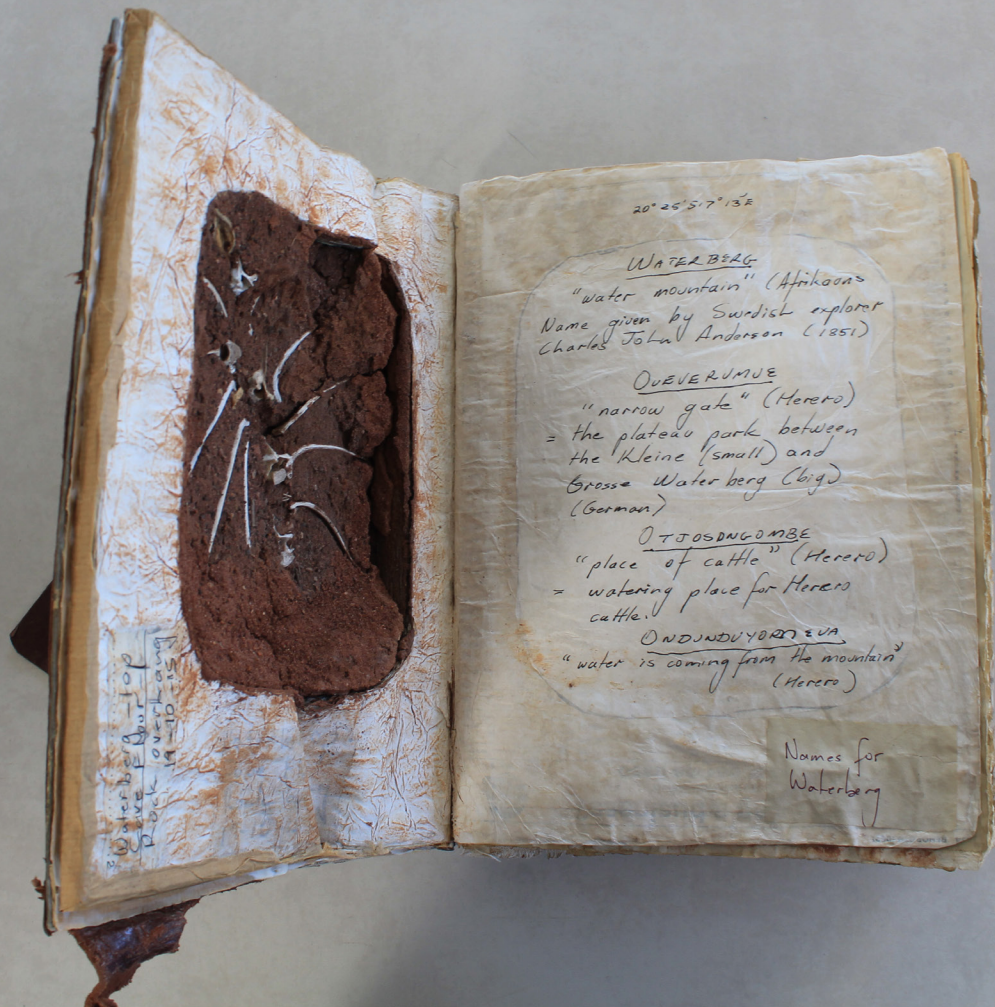 Waterberg - top
Rock overhang
19-10-15
20° 25' S 17° 13' E
WATERBERG
"water mountain" (Afrikaans
Name given by Swedish explorer
Charles John Anderson (1851)
OUEVERUMUE
"narrow gate" (Herero)
= the plateau park between
the Kleine (small) and
Grosse Waterberg (big)
(German)
OTJOSONGOMBE
"place of cattle" (Herero)
= watering place for Herero
cattle.
"water is coming from the mountain"
(Herero)
Names for
Waterberg